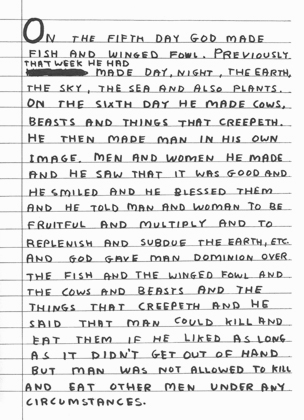 ON THE FIFTH DAY GOD MADE
FISH AND WINGED FOWL. PREVIOUSLY
THAT WEEK HE HAD
MADE DAY, NIGHT, THE EARTH,
THE SKY, THE SEA AND ALSO PLANTS.
ON THE SIXTH DAY HE MADE COWS,
BEASTS AND THINGS THAT CREEPETH.
HE THEN MADE MAN IN HIS OWN
IMAGE. MEN AND WOMEN HE MADE
AND HE SAW THAT IT WAS GOOD AND
HE SMILED AND HE BLESSED THEM
AND HE TOLD MAN AND WOMAN TO BE
FRUITFUL AND MULTIPLY AND TO
REPLENISH AND SUBDUE THE EARTH, ETC.
AND GOD GAVE MAN DOMINION OVER
THE FISH AND THE WINGED FOWL AND
THE COWS AND BEASTS AND THE
THINGS THAT CREEPETH AND HE
SAID THAT MAN COULD KILL AND
EAT THEM IF HE LIKED AS LONG
AS IT DIDN'T GET OUT OF HAND
BUT MAN WAS NOT ALLOWED TO KILL
AND EAT OTHER MEN UNDER ANY
CIRCUMSTANCES.